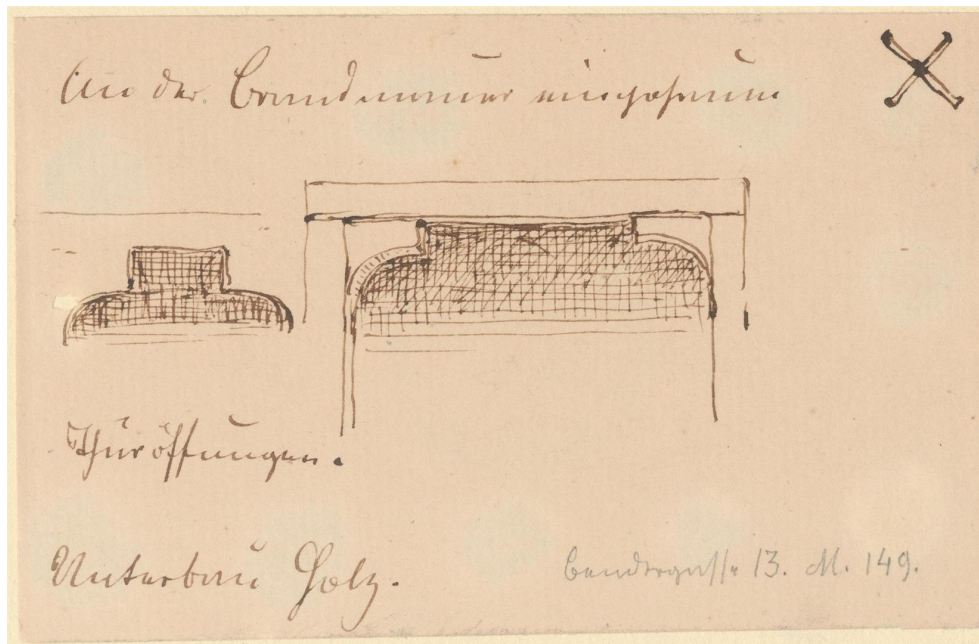 An der Brandmauer eingehauen
Thüröffnungen.
Unterbau Holz.
Bendergasse 13. M. 149.